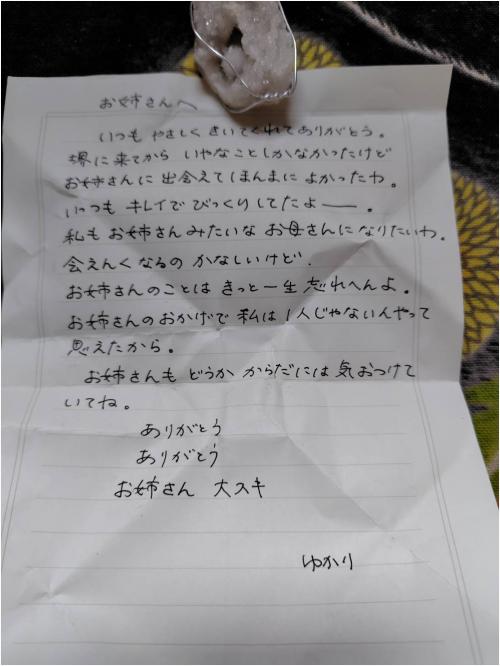 お姉さんへ
いつも やさしく きいてくれて ありがとう。
堺に来てから いやなことしかなかったけど
お姉さんに 出会えて ほんまに よかったわ。
いつも キレイで びっくりしてたよ――。
私も お姉さんみたいな お母さんに なりたいわ。
会えんくなるの かなしいけど.
お姉さんのことは きっと一生 忘れへんよ。
お姉さんのおかげで 私は 1人じゃないんやって
思えたから。
お姉さんも どうか からだには 気おつけて
いてね。
ありがとう
ありがとう
お姉さん 大スキ
ゆかり